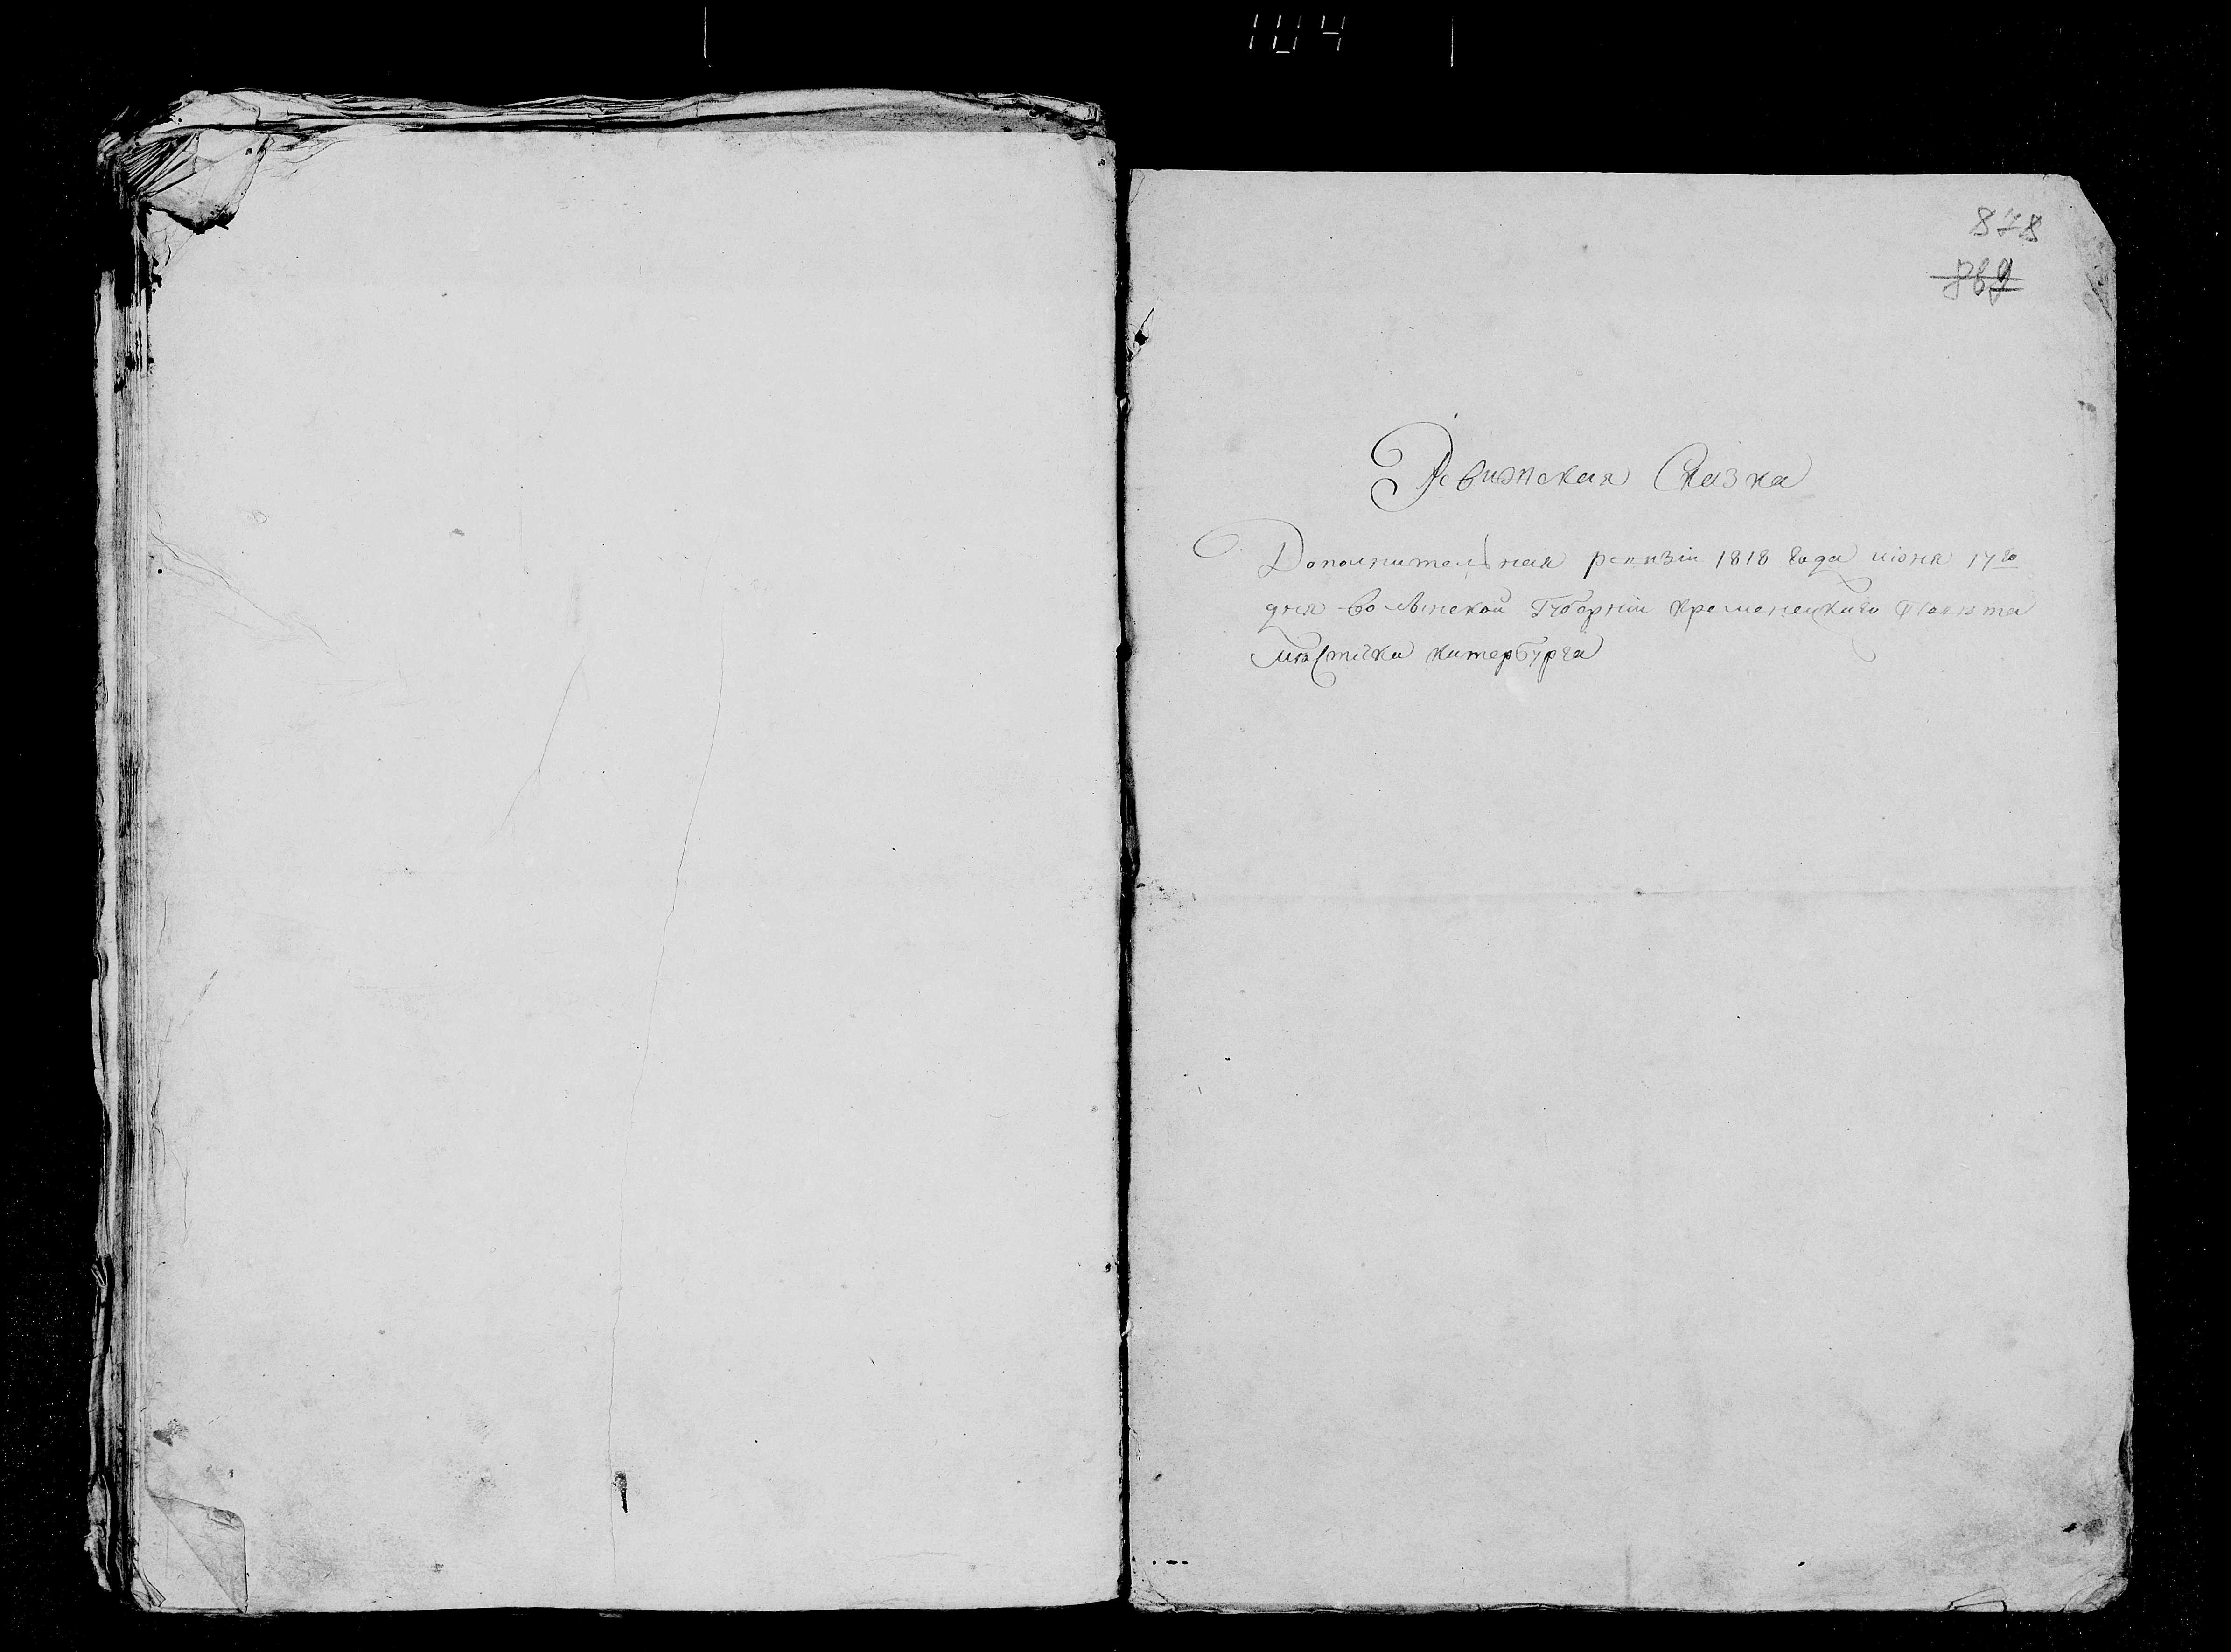 104
878
869
Ревижская Сказка
Дополнительная ревизіи 1818 года июня 17го
дня Волынской Губерніи Кременецкаго Повѣта
мѣстечка Китербурга